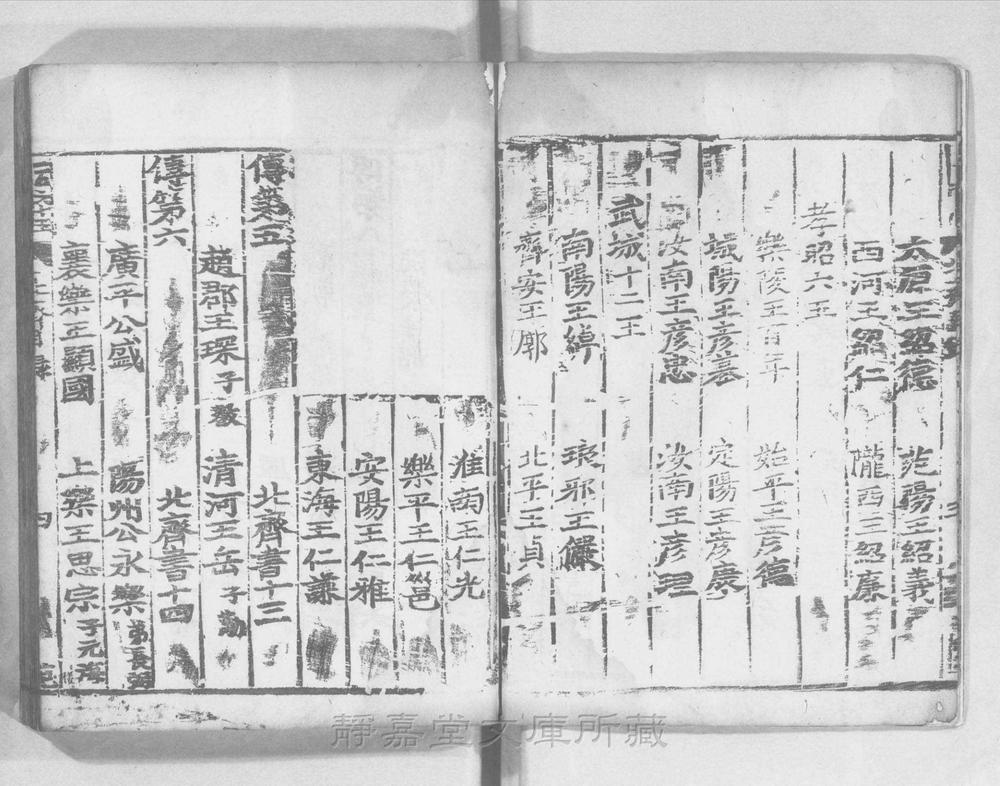 太原王紹德　范陽王紹義
西河王紹仁　隴西王紹廉
孝昭六王
樂陵王百年　始平王彥德
城陽王彥基　定陽王彥慶
汝南王彥忠　汝南王彥理
武成十二王
南陽王綽　琅邪王儼
齊安王廓　北平王貞
淮南王仁光
樂平王仁邕
安陽王仁雅
東海王仁謙
傳第五　北齊書十三
趙郡王琛子叡　清河王岳子勱
傳第六　北齊書十四
廣平公盛　陽州公永樂弟長弼
襄樂王顯國　上樂王思宗子元海
四
靜嘉堂文庫所藏